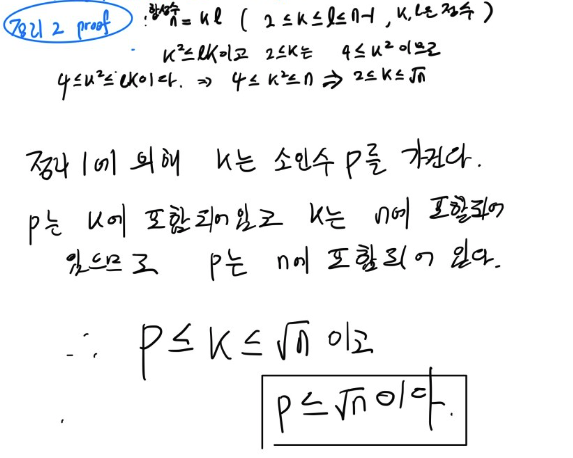 정리 2 proof : 합성수 n = kl ( 2 ≤ k ≤ l ≤ n-1, k, l은 정수 )
k² ≤ lk이고 2≤k는 4 ≤ k² 이므로
4 ≤ k² ≤ lk이다. ⇒ 4 ≤ k² ≤ n ⇒ 2 ≤ k ≤ √n
정리 1에 의해 k는 소인수 p를 가진다.
p는 k에 포함되어있고 k는 n에 포함되어
있으므로 p는 n에 포함되어 있다.
∴ p ≤ k ≤ √n 이고
p ≤ √n 이다.